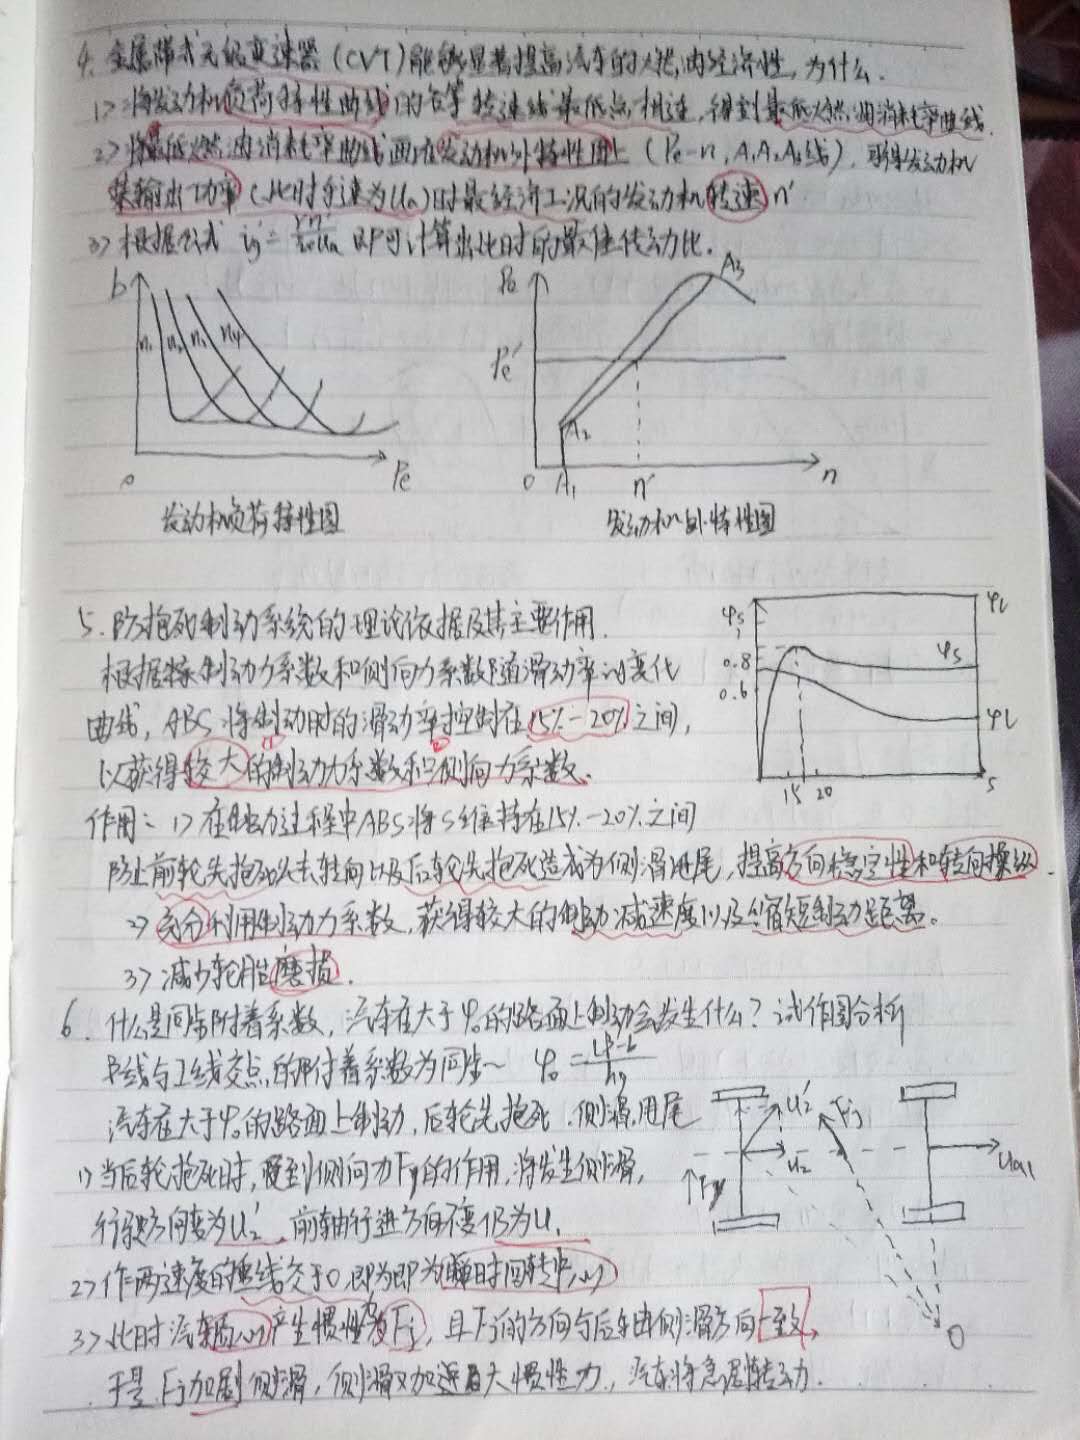 4. 金属带式无级变速器(CVT)能够显著提高汽车的燃油经济性,为什么.
1> 将发动机负荷特性曲线的各等转速线最低点相连,得到最低燃油消耗率曲线.
2> 将最低燃油消耗率曲线画在发动机外特性图上(Pe-n, A1A2A3线),可得发动机
某输出功率(此时车速为Ua)时最经济工况的发动机转速n'
3> 根据公式 即可计算出此时的最佳传动比.
b
n1 n2 n3 n4
0 Pe
发动机负荷特性图
Pe
A3
Pe'
A2
0 A1 n' n
发动机外特性图
5. 防抱死制动系统的理论依据及其主要作用.
根据 制动力系数和侧向力系数随滑动率的变化
曲线, ABS将制动时的滑动率控制在15%-20%之间,
以获得较大的制动力系数和侧向力系数.
φs
0.8
0.6
φl
φs
φl
15 20 s
作用: 1> 在制动过程中ABS将S维持在15%-20%之间
防止前轮先抱死失去转向以及后轮先抱死造成为侧滑甩尾,提高方向稳定性和转向操纵.
2> 充分利用制动力系数,获得较大的制动减速度以及缩短制动距离。
3> 减少轮胎磨损.
6. 什么是同步附着系数,汽车在大于φ0的路面上制动会发生什么?试作图分析
β线与I线交点的附着系数为同步~ φ0 = (Lβ-b)/hg
汽车在大于φ0的路面上制动,后轮先抱死.侧滑,甩尾
1> 当后轮抱死时,受到侧向力Fy的作用,将发生侧滑,
行驶方向变为U2',前轴行进方向不变仍为U1
2> 作两速度的垂线交于O,即为即为瞬时回转中心
3> 此时汽车质心产生惯性力为Fj,且Fj的方向与后轴侧滑方向一致,
于是Fj加剧侧滑,侧滑又加 大惯性力,汽车将急剧转动.
U2' Fj
U2 Ua1
Fy
O